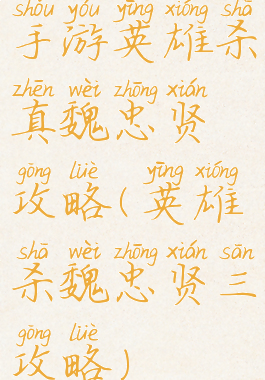 shǒu yóu yīng xióng shā
手游英雄杀
zhēn wèi zhōng xián
真魏忠贤
gōng lüè yīng xióng
攻略(英雄
shā wèi zhōng xián sān
杀魏忠贤三
gōng lüè
攻略)